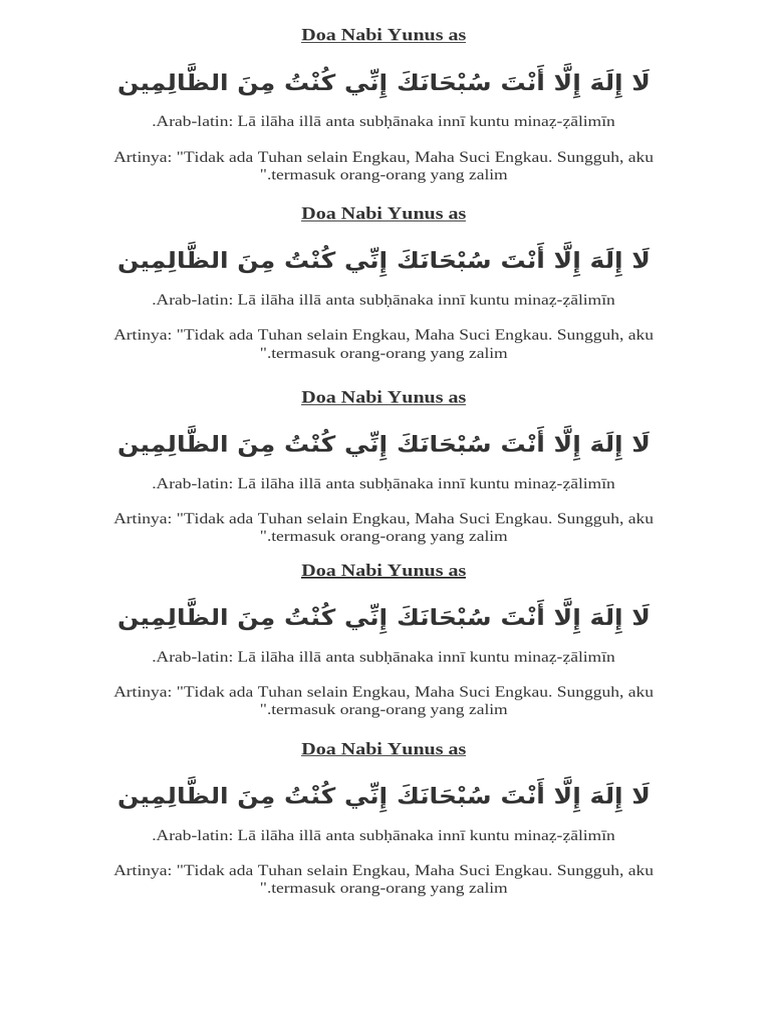 Doa Nabi Yunus as
لَا إِلَهَ إِلَّا أَنْتَ سُبْحَانَكَ إِنِّي كُنْتُ مِنَ الظَّالِمِين
.Arab-latin: Lā ilāha illā anta subḥānaka innī kuntu minaẓ-ẓālimīn
Artinya: "Tidak ada Tuhan selain Engkau, Maha Suci Engkau. Sungguh, aku
".termasuk orang-orang yang zalim
Doa Nabi Yunus as
لَا إِلَهَ إِلَّا أَنْتَ سُبْحَانَكَ إِنِّي كُنْتُ مِنَ الظَّالِمِين
.Arab-latin: Lā ilāha illā anta subḥānaka innī kuntu minaẓ-ẓālimīn
Artinya: "Tidak ada Tuhan selain Engkau, Maha Suci Engkau. Sungguh, aku
".termasuk orang-orang yang zalim
Doa Nabi Yunus as
لَا إِلَهَ إِلَّا أَنْتَ سُبْحَانَكَ إِنِّي كُنْتُ مِنَ الظَّالِمِين
.Arab-latin: Lā ilāha illā anta subḥānaka innī kuntu minaẓ-ẓālimīn
Artinya: "Tidak ada Tuhan selain Engkau, Maha Suci Engkau. Sungguh, aku
".termasuk orang-orang yang zalim
Doa Nabi Yunus as
لَا إِلَهَ إِلَّا أَنْتَ سُبْحَانَكَ إِنِّي كُنْتُ مِنَ الظَّالِمِين
.Arab-latin: Lā ilāha illā anta subḥānaka innī kuntu minaẓ-ẓālimīn
Artinya: "Tidak ada Tuhan selain Engkau, Maha Suci Engkau. Sungguh, aku
".termasuk orang-orang yang zalim
Doa Nabi Yunus as
لَا إِلَهَ إِلَّا أَنْتَ سُبْحَانَكَ إِنِّي كُنْتُ مِنَ الظَّالِمِين
.Arab-latin: Lā ilāha illā anta subḥānaka innī kuntu minaẓ-ẓālimīn
Artinya: "Tidak ada Tuhan selain Engkau, Maha Suci Engkau. Sungguh, aku
".termasuk orang-orang yang zalim